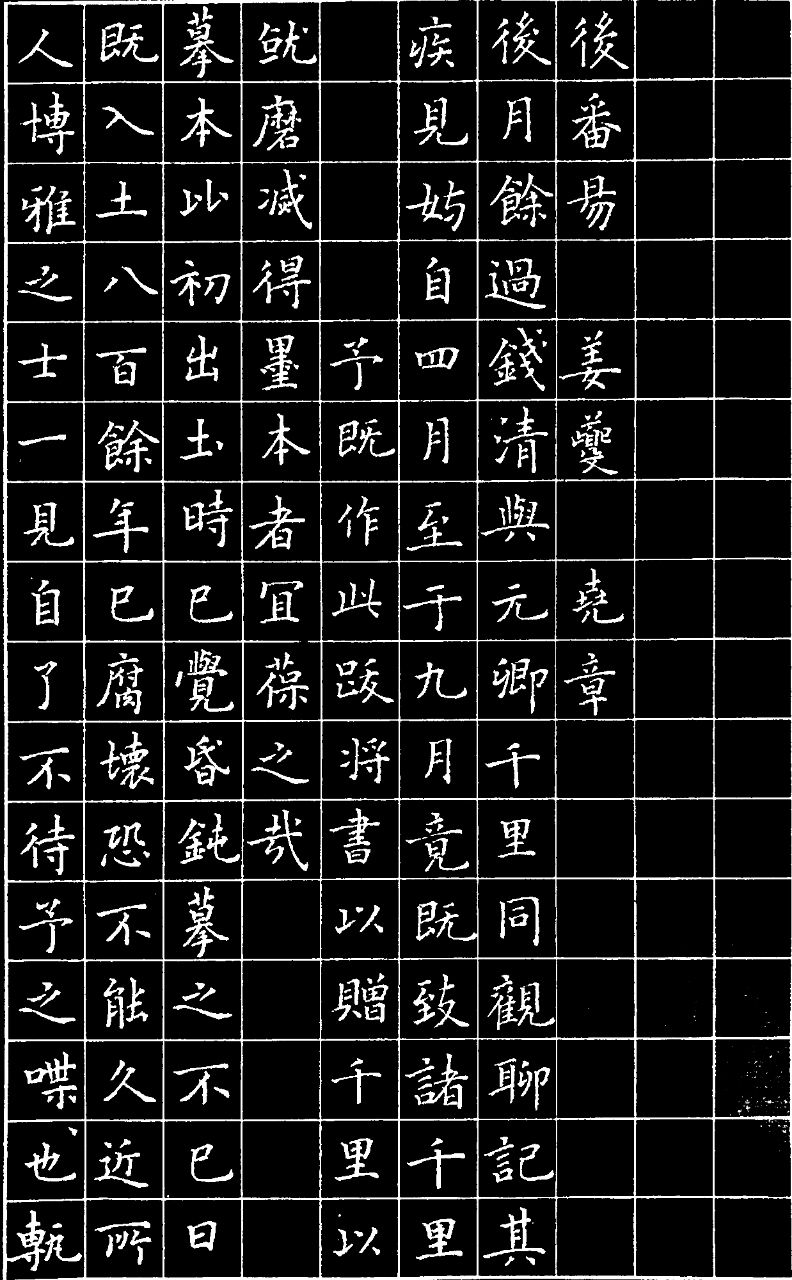 人博雅之士一見自了不待予之喋〻也甎
既入土八百餘年巳腐壞恐不能久近所
摹本比初出圡時巳覺昏鈍摹之不巳日
就磨滅得墨本者冝葆之哉
予既作此跋将書以贈千里以
疾見妨自四月至于九月竟既致諸千里
後月餘過錢清與元卿千里同觀聊記其
後番昜 姜夔 堯章